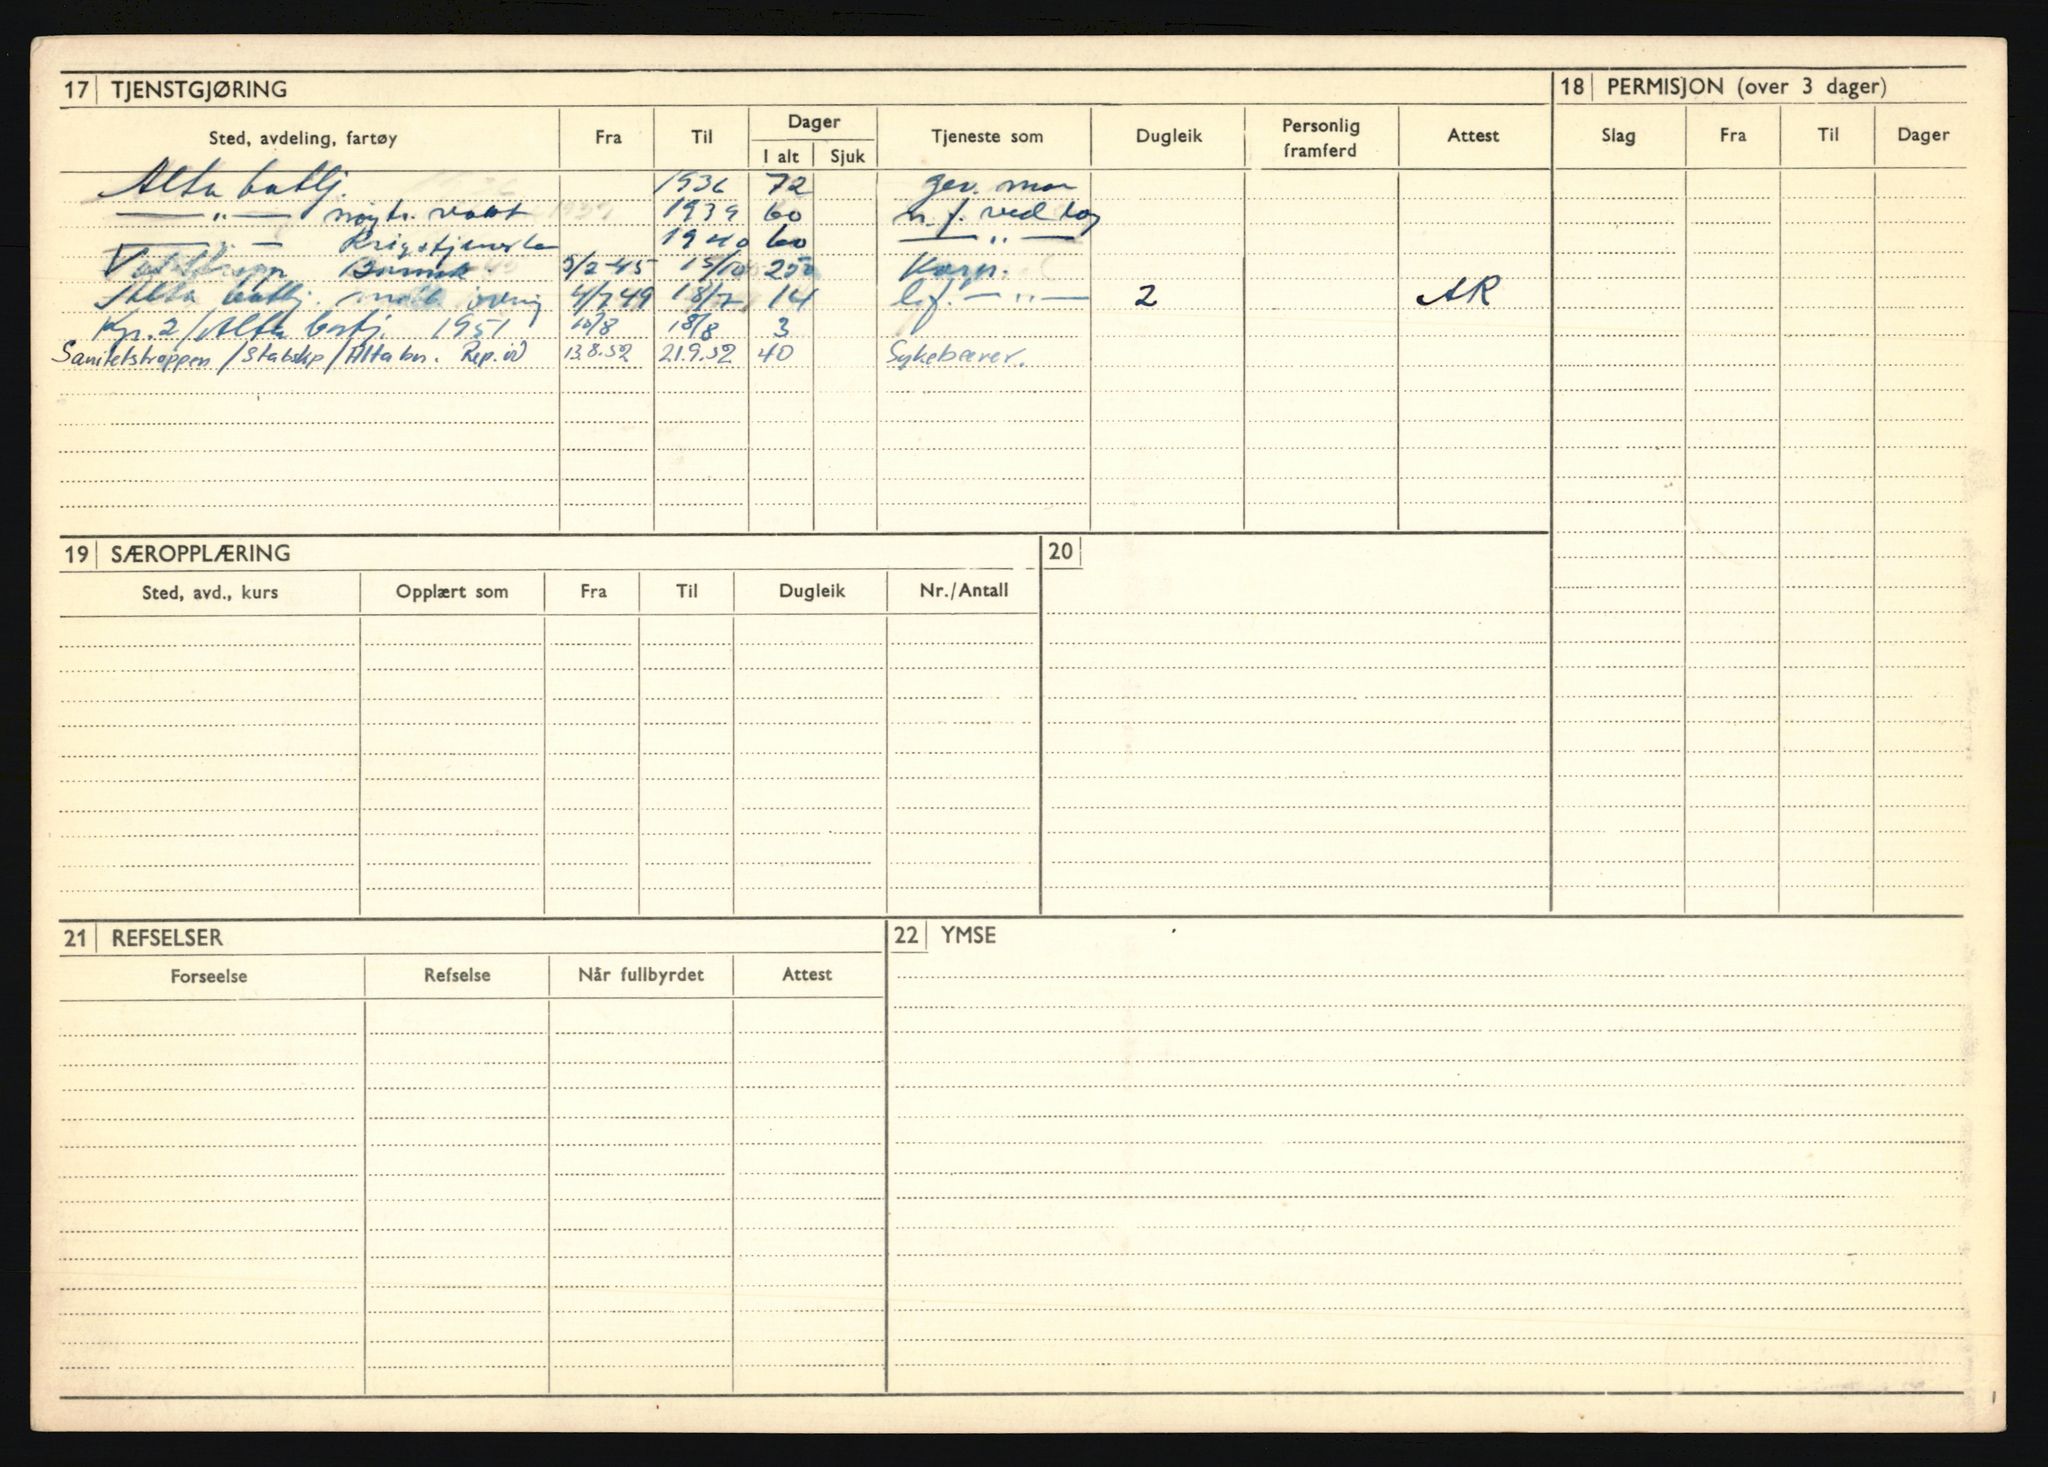 17 TJENSTGJØRING
18 PERMISJON (over 3 dager)
Sted, avdeling, fartøy Fra Til Dager I alt Sjuk Tjeneste som Dugleik Personlig framferd Attest
Slag Fra Til Dager
Alta batlj. 1936 72 gev. man
— „ — nøytr. vakt 1939 60
— „ — Krigstjeneste 1940 60 — „ —
5/2-45 15/10 250
Alta batlj. 4/7 49 18/7 14 — „ — 2 AR
Kp. 2/Alta 1951 18/8 3
Sanitetstroppen/Stabskp/Alta bn. Rep. 13.8.52 21.9.52 40 Sykebærer.
19 SÆROPPLÆRING
20
Sted, avd., kurs Opplært som Fra Til Dugleik Nr./Antall
21 REFSELSER
22 YMSE
Forseelse Refselse Når fullbyrdet Attest